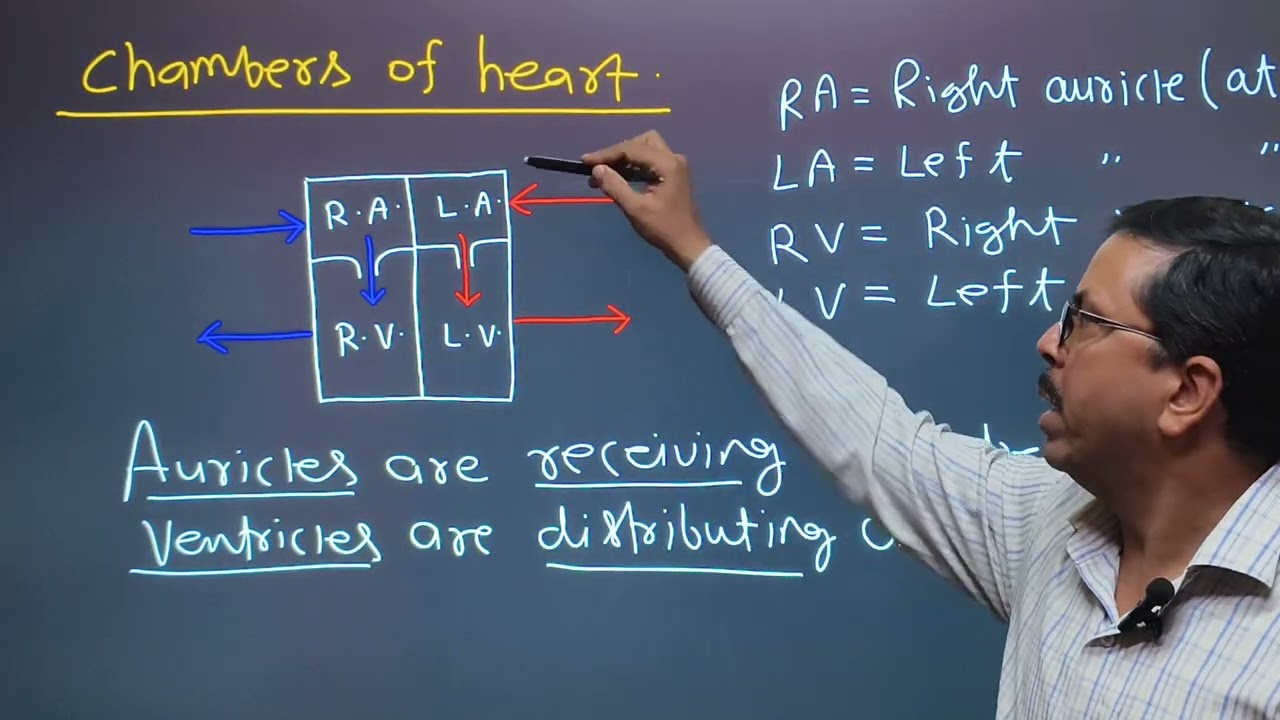 Chambers of heart.
RA = Right auricle (at
LA = Left " "
RV = Right
V = Left
R.A. L.A.
R.V. L.V.
Auricles are receiving
Ventricles are distributing